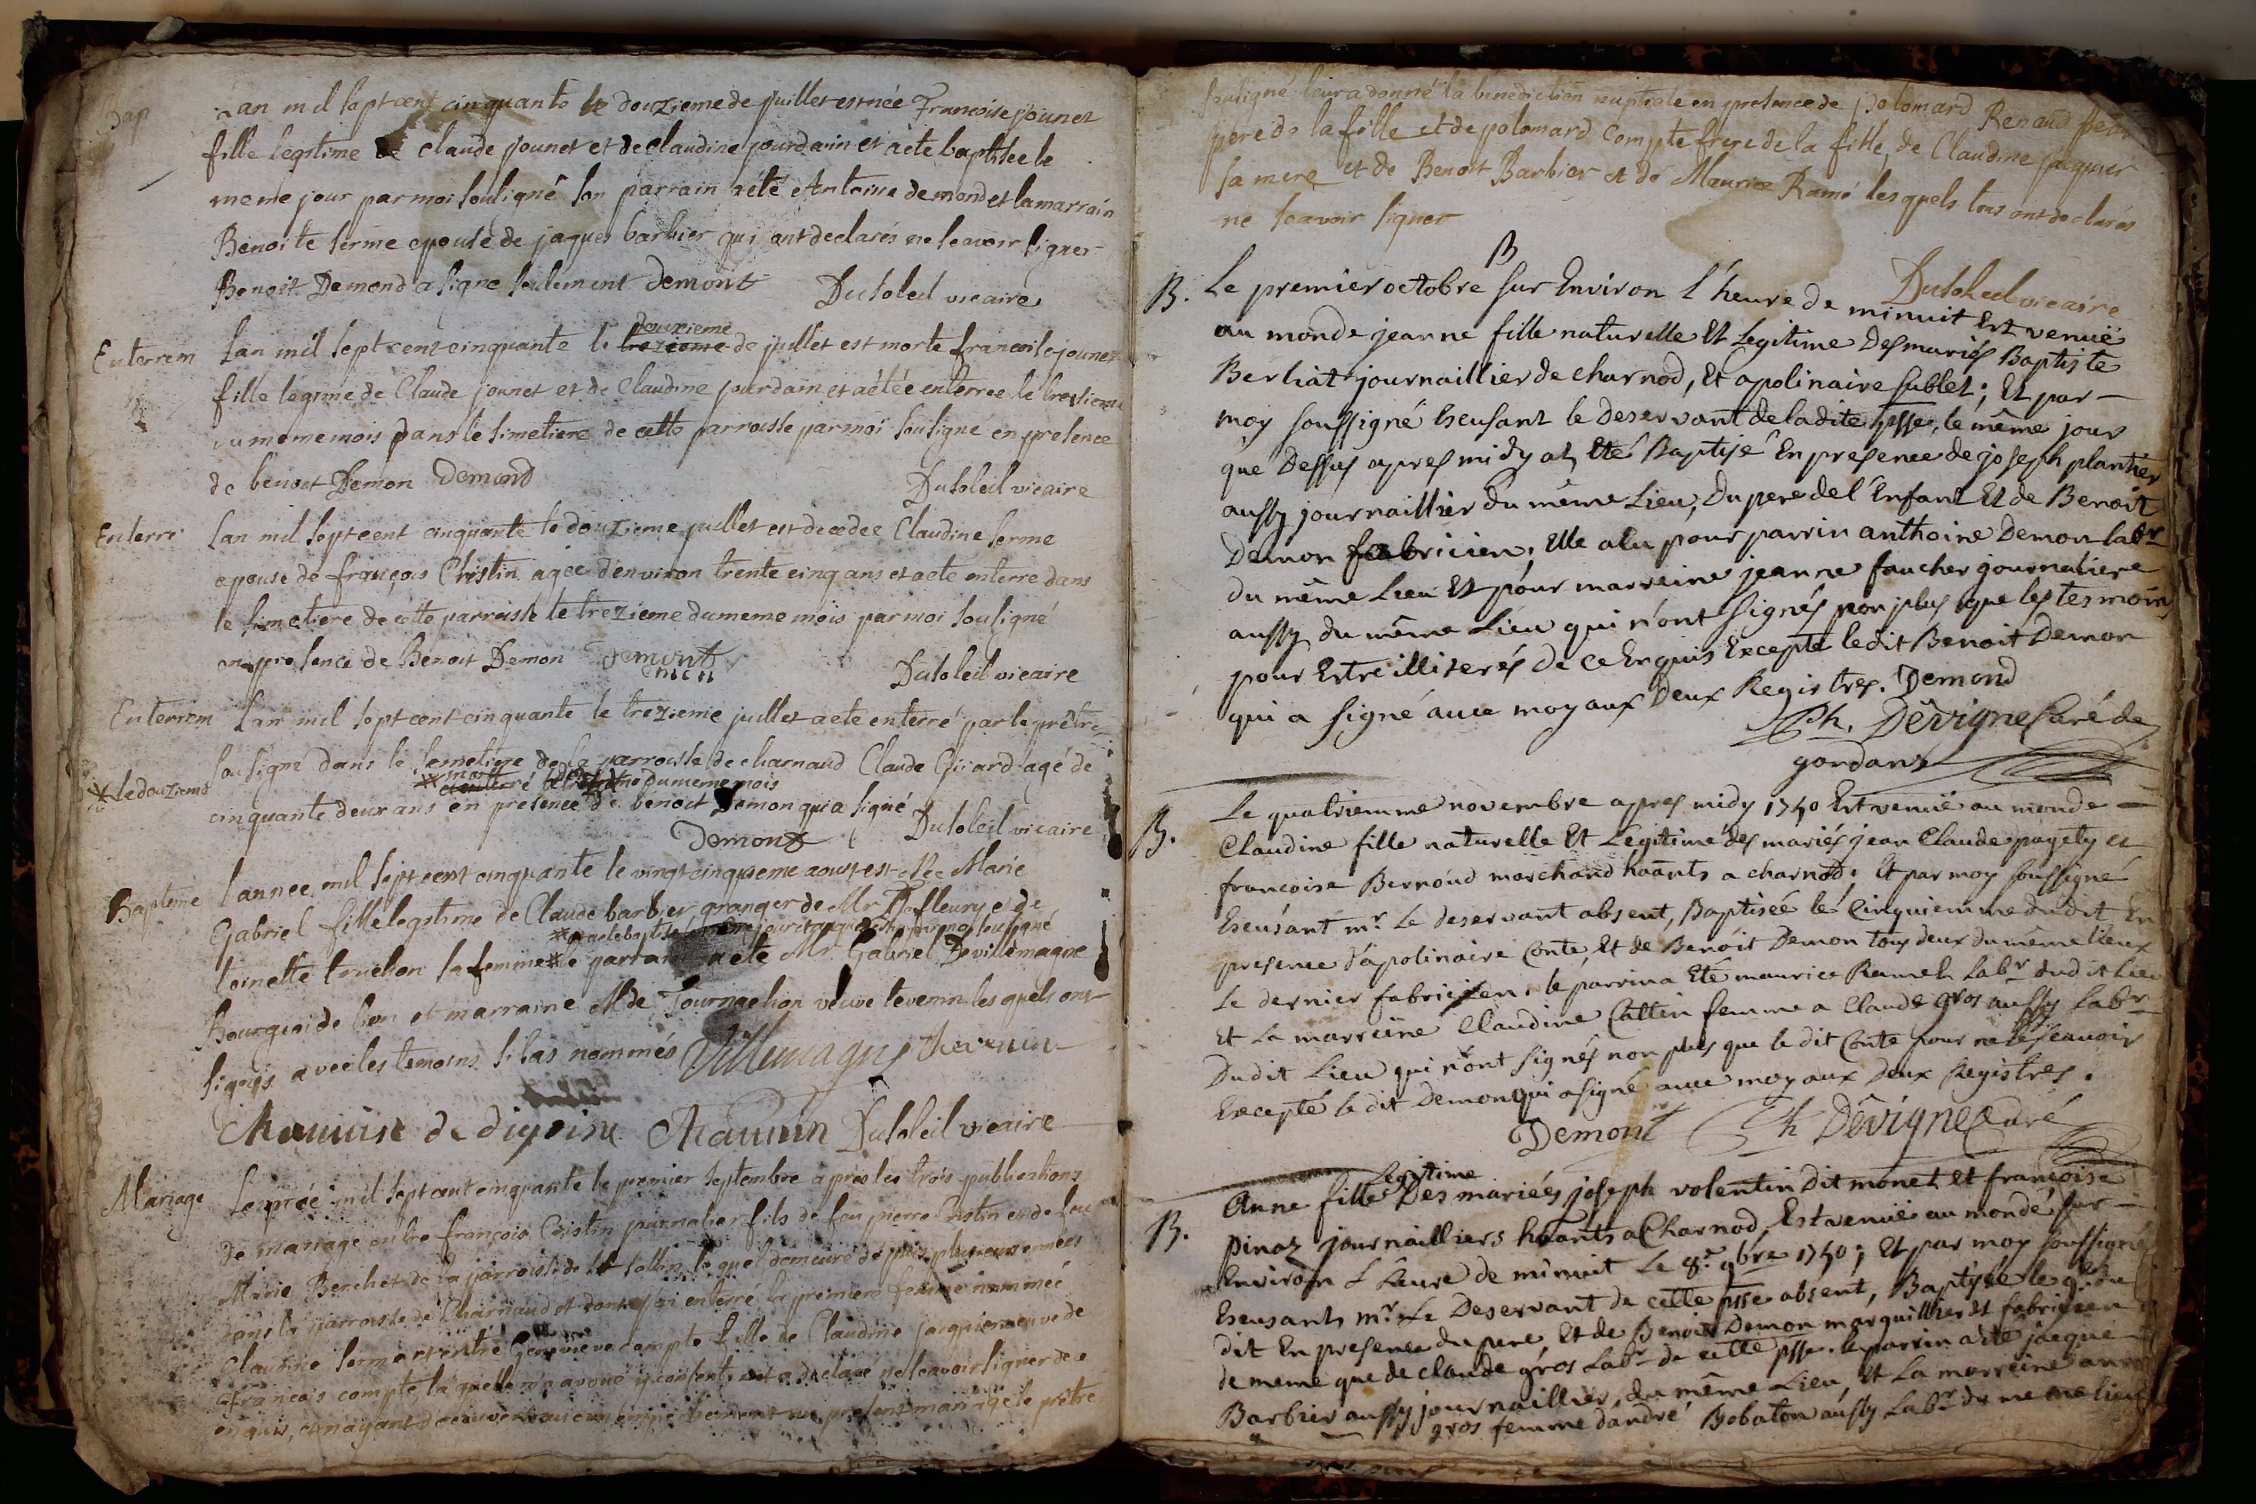 Bap
Lan mil sept cent cinquante le douzieme de juillet est née Francoise jounet
fille legitime de claude jounet et de claudine jourdain et a ete baptisee le
meme jour par moi souligné son parrain a été Antoine demond et la marrain
Benoite serme epouse de jaques barbier qui ont declarés ne scavoir signer
Benoit Demond a signe seulement Demont Dusoleil vicaire
Enterrem
douzieme
Lan mil sept cent cinquante le trezieme de juillet est morte francoise jounet
fille legitime de Claude jounet et de Claudine jourdain et a étée enterree le trezieme
du meme mois dans le simetiere de cette parroisse par moi souligné en presence
de benoit Demon Demond Dusoleil vicaire
Enterre
Lan mil sept cent cinquante le douzieme juillet est decedee Claudine serme
epouse de françois Cristin agée d'environ trente cinq ans et a ete enterre dans
le simetiere de cette parroisse le trezieme du meme mois par moi souligné
en presence de Benoit Demon Demont
Dusoleil vicaire
Enterrem
Lan mil sept cent cinquante le trezieme juillet a ete enterré par le prêtre
souligné dans le semetiere de la parroisse de charnaud Claude Girard agé de
* le douzieme
* mort du meme mois
cinquante deux ans en presence de benoit Demon qui a signé
Demont Dusoleil vicaire
Bapteme
L'annee mil sept cent cinquante le vingt cinquieme aoust est Née Marie
Gabriel fille legitime de Claude barbier granger de Mr De fleury et de
* a ete baptisé le meme jour par moy souligné
toinette touillon sa femme * le parrain a été Mr Gabriel De villemagne
Bourgeoi de lion et marraine Mde Tournachon veuve tevenin les quels ont
signés avec les temoins si bas nommés Villemagne Thevenin
de digoine Dusoleil vicaire
Mariage
L'année mil sept cent cinquante le premier septembre apres les trois publications
de mariage entre françois Cristin journalier fils de feu pierre Cristin et de feue
Marie Berchet de la parroisse de le quel demeure depuis plusieurs années
dans la parroisse de Charnaud et dont j'ai enterré la premiere femme nommée
Claudine serme et entre Genevieve compte fille de Claudine jacquier veuve de
francois compte, la quelle m'a avoué y consentir et a declaré ne scavoir signer de ce
enquis, et n'ayant decouvert aucun empechement au present mariage le prêtre
souligné leur a donné la benediction nuptiale en presence de polomard Renaud
pere de la fille et de polomard Compte frere de la fille, de Claudine jacquier
sa mere et de Benoit Barbier et de Maurice Ramé les quels tous ont declarés
ne scavoir signer
Dusoleil vicaire
B
B. Le premier octobre sur Environ l'heure de minuit Est venuë
au monde jeanne fille naturelle Et Legitime Des mariés Baptiste
Berliat journaillier de charnod, Et apolinaire sublet; Et par
moy soussigné Excusant le Deservant de ladite psse, le même jour
que Dessus apres midy at Eté Baptisé En presence de joseph plantier
aussy journaillier du même Lieu, Du pere de l'Enfant Et de Benoit
Demon fabricien, Elle a Eu pour parrin anthoine Demon labr
du même Lieu Et pour marreine jeanne faucher journaliere
aussy du même Lieu qui n'ont signés non plus que les tesmoins
pour Estre illiterés de ce Enquis Excepté ledit Benoit Demon
qui a signé avec moy aux Deux Registres. Demond
Ph. Dêvigne Curé de
gordans
B.
Le quatriemme novembre apres midy 1750 Est venuë au monde
Claudine fille naturelle Et Legitime des mariés jean Claude pagety et
francoise Bernoud marchand hãants a charnod; Et par moy soussigné
Excusant mr. Le deservant absent, Baptisée le Cinquiemme dudit En
presence d'apolinaire Conte, Et de Benoit Demon tous deux du même lieux
Le dernier fabricien, le parrin a Eté maurice Ramel labr dudit lieu
Et La marreine Claudine Cattin femme a Claude gros aussy Labr
Dudit Lieu qui n'ont signés non plus que le dit Conte pour ne le sçavoir
Excepté le dit Demon qui a signé avec moy aux Deux Registres.
Demont Ph Dêvigne Curé
Legitime
B. Anne fille Des mariées joseph volentin Dit monet Et françoise
pinaz journailliers hãants a Charnod, Est venuë au monde sur
Environ L'heure de minuit Le 8e 9bre 1750; Et par moy soussigné
Excusants mr. Le Deservant de cette psse absent, Baptisée le 9e du
dit En presence du pere Et de Benoit Demon marguillier Et fabricien
de meme que de claude gros Labr de cette psse. le parrin a ete jacque
Barbier aussy journaillier, du même Lieu, Et La marreine anne
gros femme d'andré Bobaton aussy Labr du meme lieu